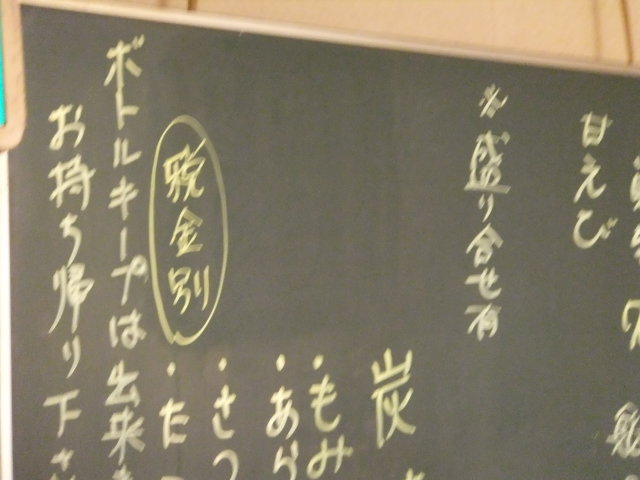 甘えび
※盛り合せ有
炭
・もみ
・あら
・さつ
・た
税金別
ボトルキープは出来
お持ち帰り下さ